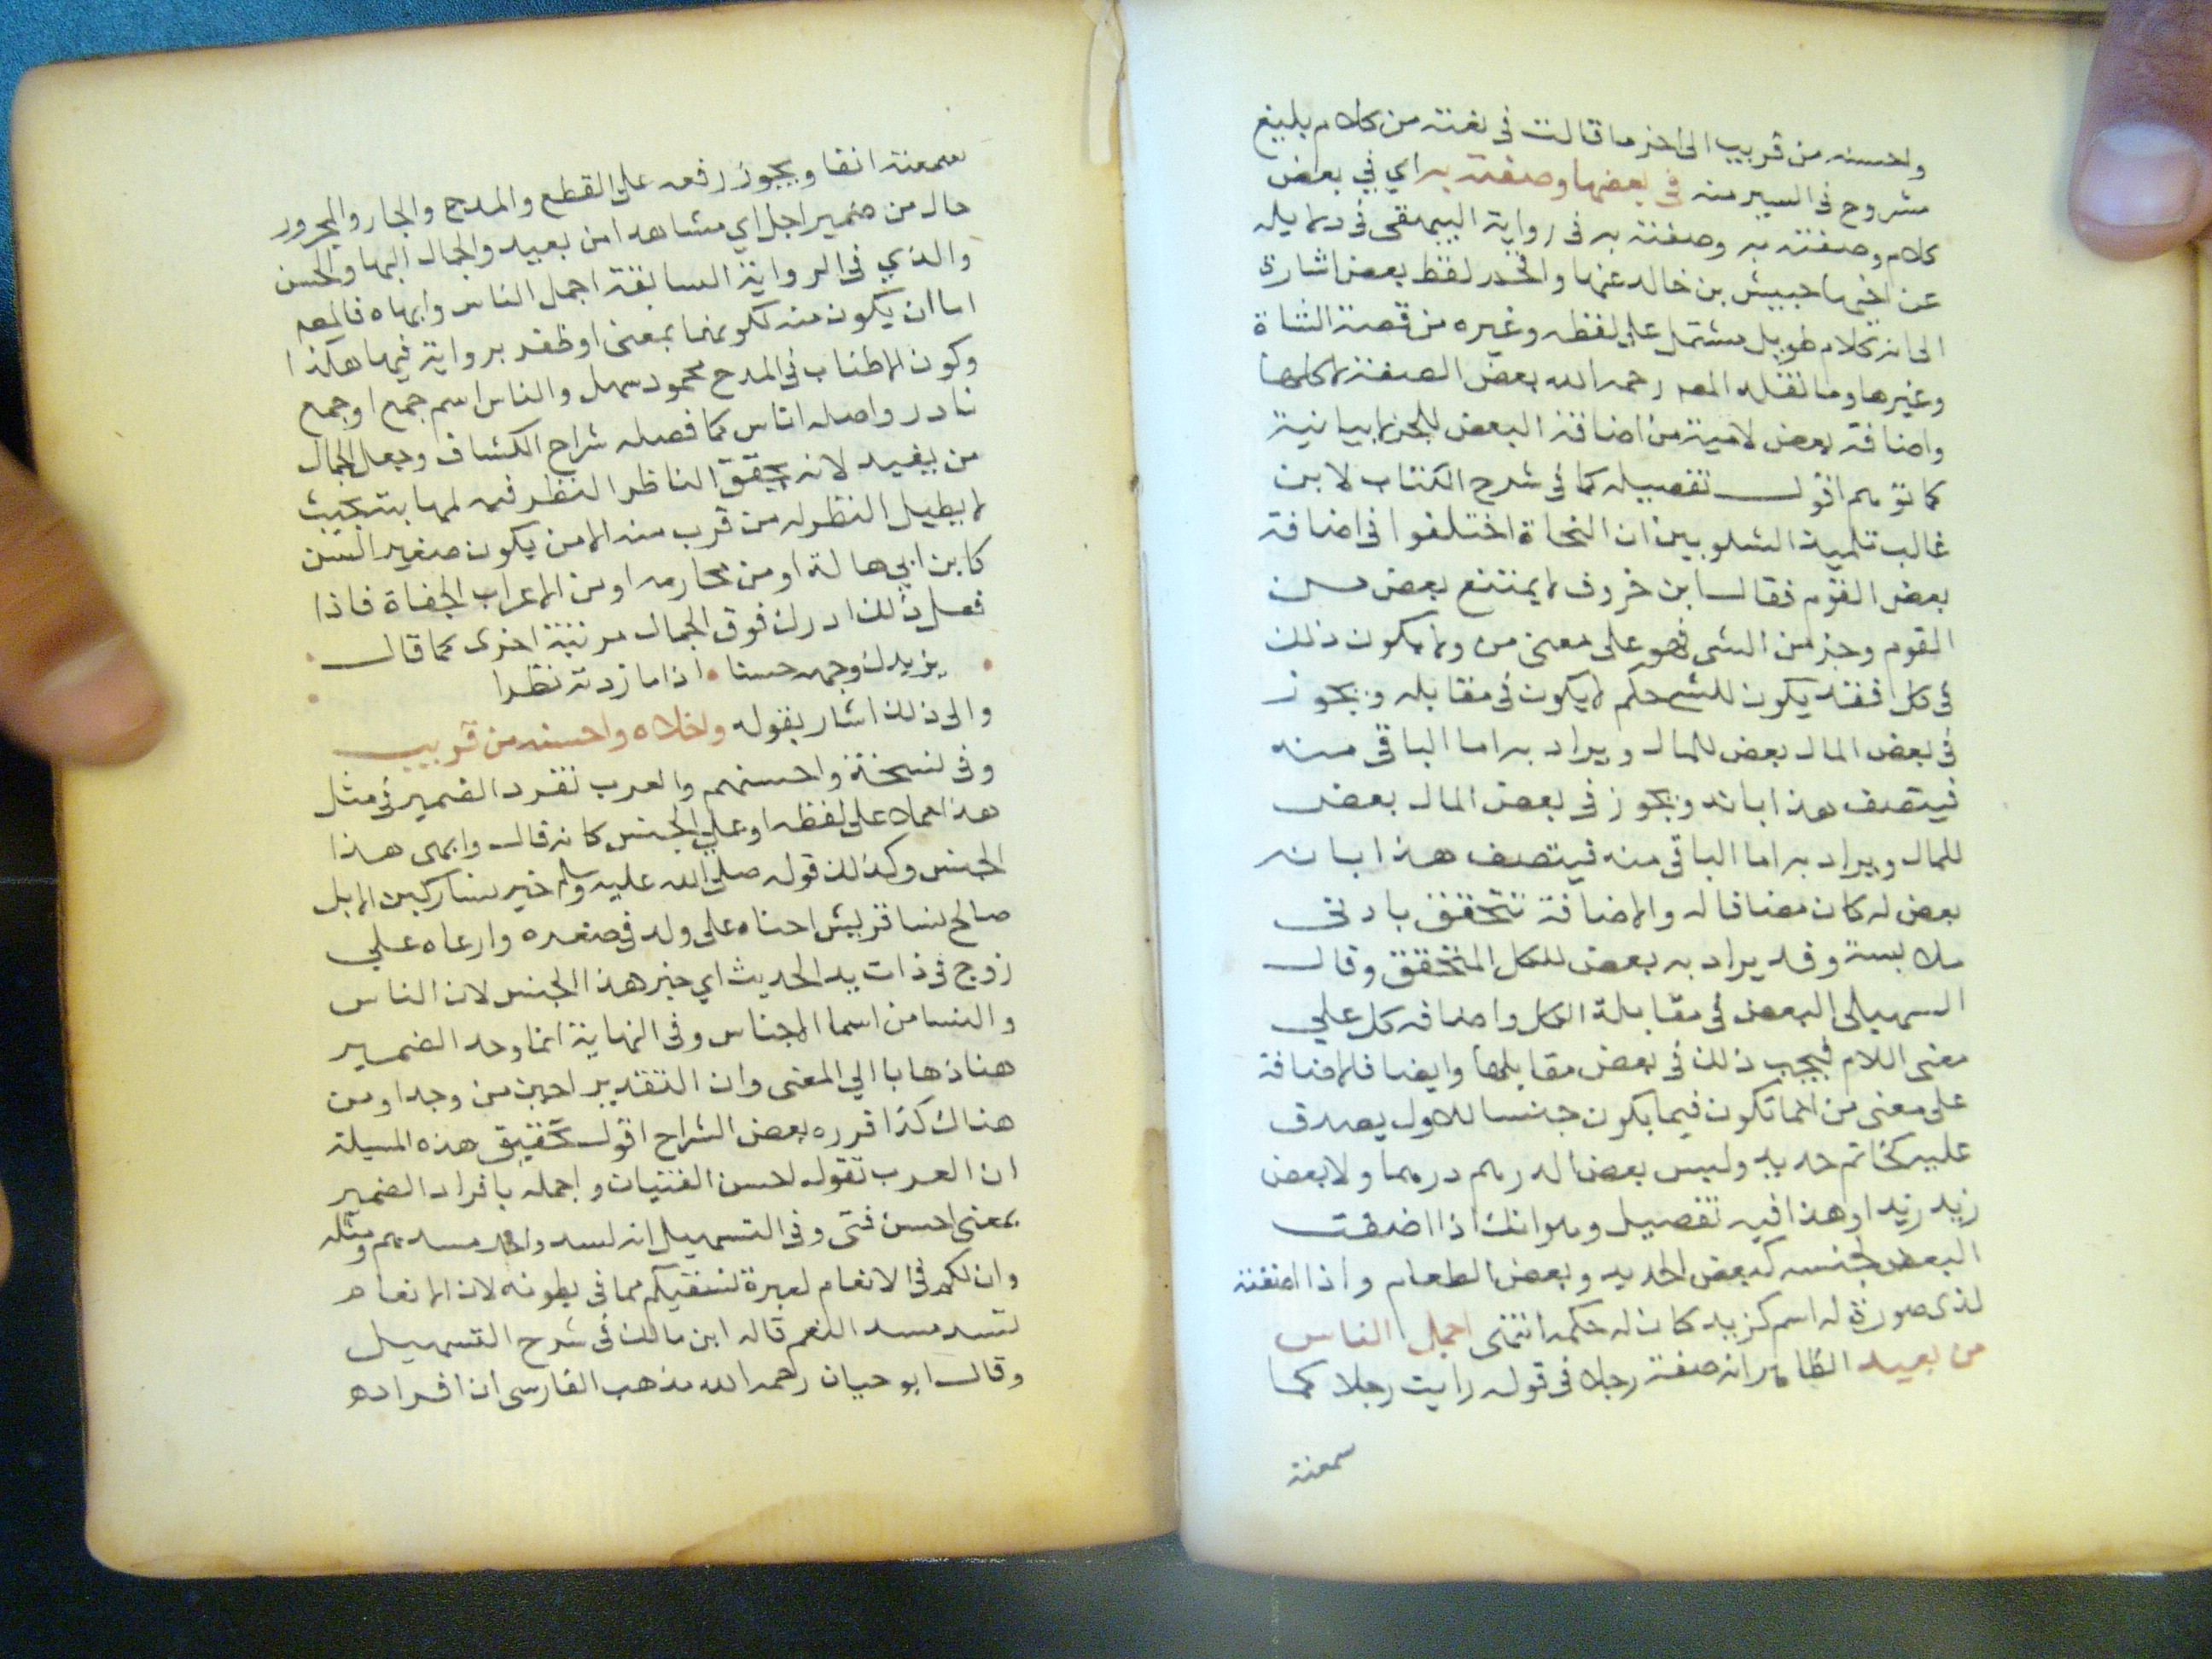 واحسنه من قريب الى اخر ما قالت فى نعته من كلام بليغ
مشروح فى السير منه فى بعضها وصفته به اي في بعض
كلام وصفته به وصفته به فى رواية البيهقى فى دلايله
عن اخيها حبيش بن خالد عنها واقحم لفظ بعض اشارة
الى انه كلام طويل مشتمل على لفظه وغيره من قصة الشاة
وغيرها وما نقله المص رحمه الله بعض الصفة لا كلها
واضافة بعض لامية من اضافة البعض للجزء لا بيانية
كما توهم اقول تفصيله كما فى شرح الكتاب لابن
غالب تلميذ الشلوبين ان النحاة اختلفوا فى اضافة
بعض القوم فقال ابن خروف لا يمتنع بعض من
القوم وجز من الشى فهو على معنى من ولا يكون ذلك
فى كل فقد يكون للشى حكم لا يكون فى مقابله ويجوز
فى بعض المال بعض للمال ويراد به اما الباقى منه
فيتصف هذا بانه ويجوز فى بعض المال بعض
للمال ويراد به اما الباقى منه فيتصف هذا بانه
بعض له كان مضافا له والاضافة تتحقق بادنى
ملابسة وقد يراد به بعض للكل المتحقق وقال
السهيلى البعض فى مقابلة الكل واضافه كل علي
معنى اللام فيجب ذلك فى بعض مقابلها وايضا فالاضافة
على معنى من انما تكون فيما يكون جنسا للاول يصدق
عليه كخاتم حديد وليس بعض الدرهم درهما ولا بعض
زيد زيدا وهذا فيه تفصيل وهو انك اذا اضفت
البعض لجنسه كبعض الحديد وبعض الطعام واذا اضفته
لذى صورة له اسم كزيد كان له حكمه انتهى اجمل الناس
من بعيد الظاهر انه صفة رجلا فى قوله رايت رجلا كما
سمعته
سمعته انفا ويجوز رفعه على القطع والمدح والجار والمجرور
حال من ضمير اجل اي مشاهدا من بعيد والجمال البها والحسن
والذي فى الرواية السابقة اجمل الناس وابهاه فالمص
اما ان يكون منه لكونهما بمعنى او ظفر برواية فيها هكذا
وكون الاطناب فى المدح محمود سهل والناس اسم جمع او جمع
نادر واصله اناس كما فصله شراح الكشاف وجعل الجمال
من بعيد لانه يحقق الناظر النظر فيه لمهابته بحيث
لا يطيل النظر له من قرب منه الا من يكون صغير السن
كابن ابي هالة او من محارمه او من الاعراب الجفاة فاذا
فعل ذلك ادرك فوق الجمال مرتبة اخرى كما قال
يزيدك وجهه حسنا اذا ما زدته نظرا
والى ذلك اشار بقوله واحلاه واحسنه من قريب
وفى نسخة واحسنهم والعرب تفرد الضمير فى مثل
هذا حملا على لفظه او على الجنس كانه قال وابهى هذا
الجنس وكذلك قوله صلى الله عليه وسلم خير نسا ركبن الابل
صالح نسا قريش احناه على ولد فى صغره وارعاه علي
زوج فى ذات يد الحديث اي خير هذا الجنس لان الناس
والنسا من اسما الاجناس وفى النهاية انما وحد الضمير
هنا ذهابا الي المعنى وان التقدير احسن من وجد او من
هناك كذا قرره بعض الشراح اقول تحقيق هذه المسيلة
ان العرب تقول احسن الفتيات واجمله بافراد الضمير
بمعنى احسن فتى وفى التسهيل انه لسد واحد مسدهم ومثله
وان لكم فى الانعام لعبرة نسقيكم مما فى بطونه لان الانعام
تسد مسد النعم قاله ابن مالك فى شرح التسهيل
وقال ابو حيان رحمه الله مذهب الفارسى ان افراده